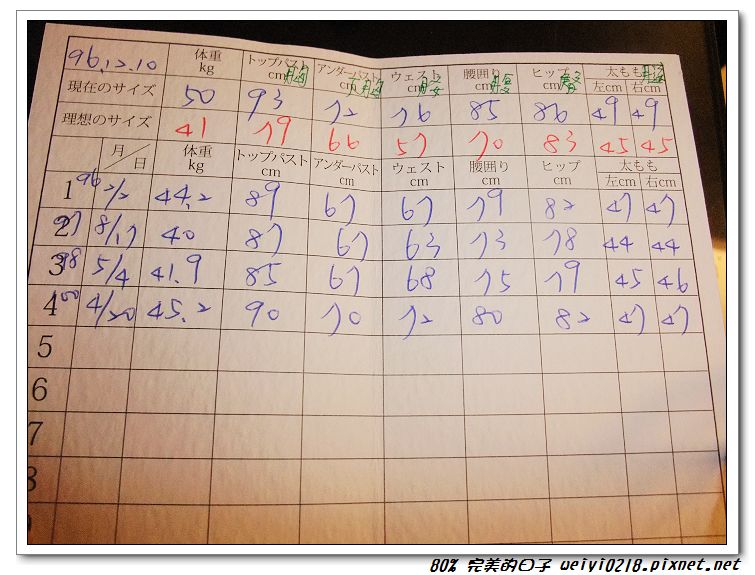 96.12.10 体重 kg トップバスト cm 胸 アンダーバスト cm 下胸 ウェスト cm 腰 腰囲り cm 腹 ヒップ cm 臀 太もも 左cm 右cm 腿
現在のサイズ 50 93 72 76 85 86 49 49
理想のサイズ 41 79 66 57 70 83 45 45
月/日 体重 kg トップバスト cm アンダーバスト cm ウェスト cm 腰囲り cm ヒップ cm 太もも 左cm 右cm
1 96 2/2 44.2 89 67 67 79 82 47 47
2 97 8/17 40 87 67 63 73 78 44 44
3 98 5/4 41.9 85 67 68 75 79 45 46
4 100 4/20 45.2 90 70 72 80 82 47 47
5
6
7
8
80% 完美的日子 weiyi0218.pixnet.net